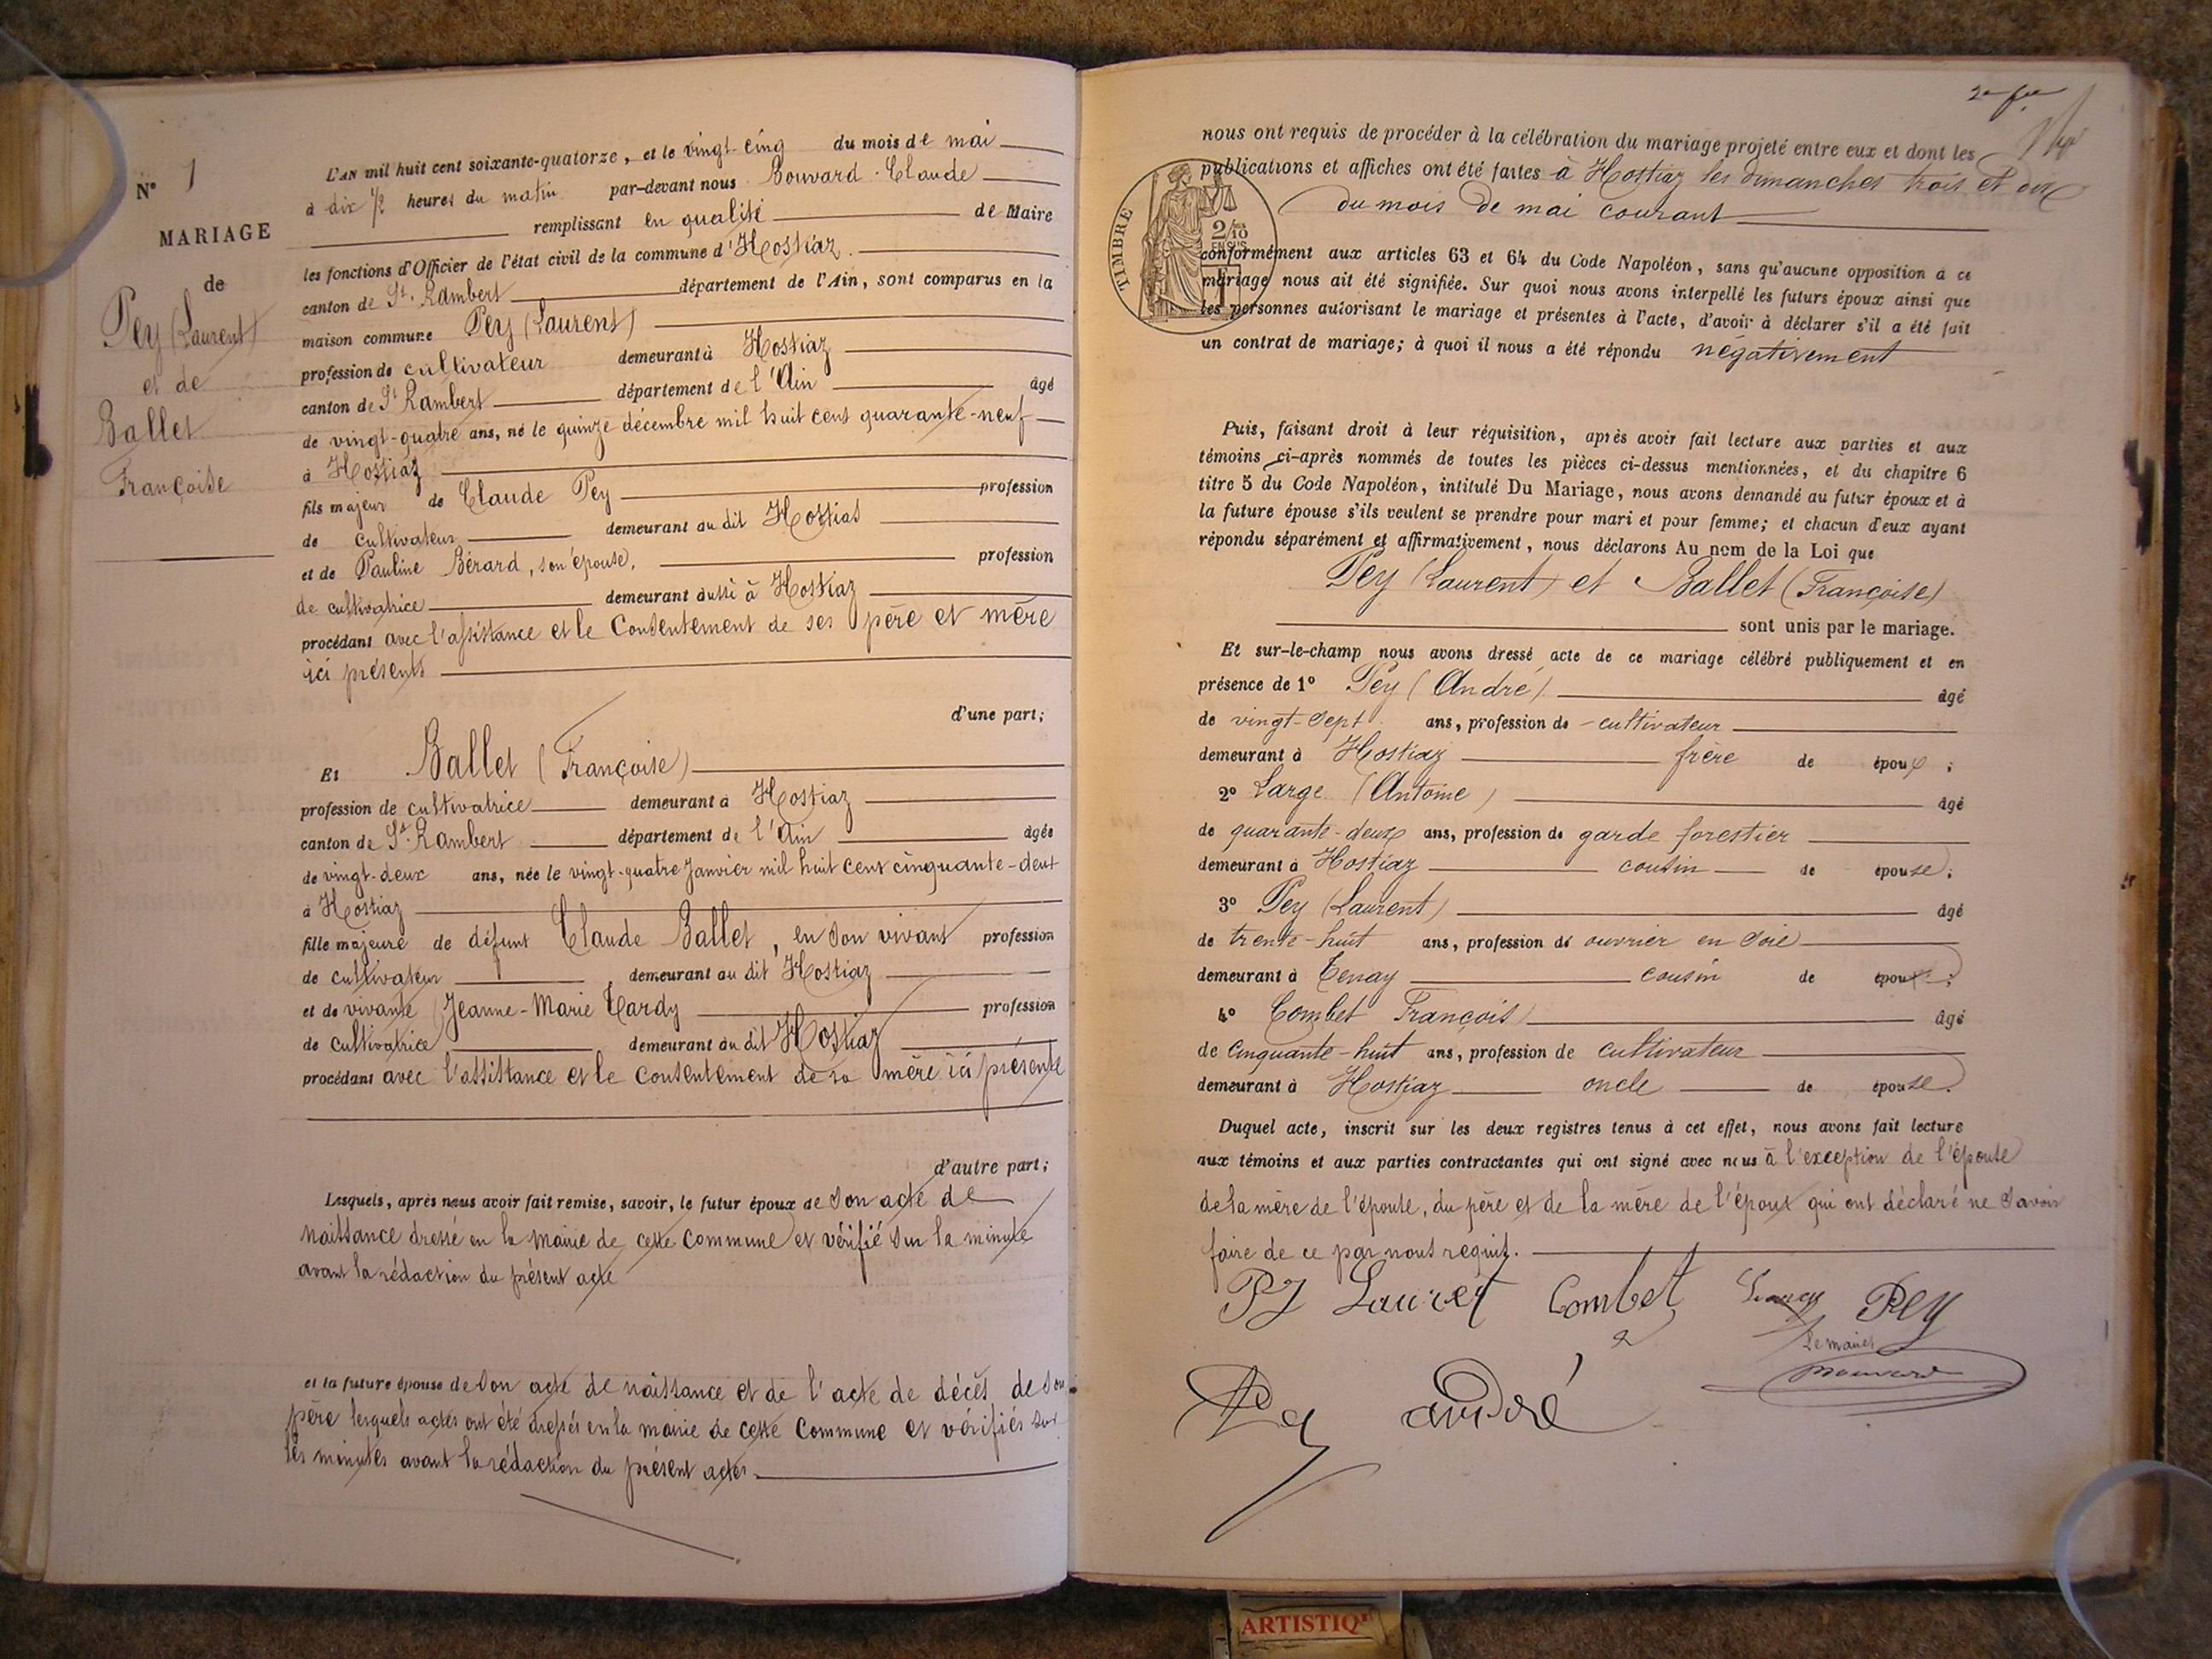 N° 1
MARIAGE
de
Pey (Laurent)
et de
Ballet
Françoise
L'AN mil huit cent soixante-quatorze, et le vingt-cinq du mois de mai
à dix ½ heures du matin par-devant nous Bouvard Claude
remplissant en qualité de Maire
les fonctions d'Officier de l'état civil de la commune d'Hostiaz
canton de St. Rambert département de l'Ain, sont comparus en la
maison commune Pey (Laurent)
profession de cultivateur demeurant à Hostiaz
canton de St Rambert département de l'Ain âgé
de vingt-quatre ans, né le quinze décembre mil huit cent quarante-neuf
à Hostiaz
fils majeur de Claude Pey profession
de cultivateur demeurant au dit Hostias
et de Pauline Bérard, son épouse, profession
de cultivatrice demeurant aussi à Hostiaz
procédant avec l'assistance et le Consentement de ses père et mère
ici présents
d'une part;
Et Ballet (Françoise)
profession de cultivatrice demeurant à Hostiaz
canton de St. Rambert département de l'Ain âgée
de vingt-deux ans, née le vingt-quatre Janvier mil huit cent cinquante-deux
à Hostiaz
fille majeure de défunt Claude Ballet, en son vivant profession
de cultivateur demeurant au dit Hostiaz
et de vivante Jeanne-Marie Tardy profession
de cultivatrice demeurant au dit Hostiaz
procédant avec l'assistance et le consentement de sa mère ici présente
d'autre part;
Lesquels, après nous avoir fait remise, savoir, le futur époux de son acte de
naissance dressé en la mairie de cette commune et vérifié sur la minute
avant la rédaction du présent acte
et la future épouse de son acte de naissance et de l'acte de décès de son
père lesquels actes ont été dressés en la mairie de cette commune et vérifiés sur
les minutes avant la rédaction du présent acte
nous ont requis de procéder à la célébration du mariage projeté entre eux et dont les
publications et affiches ont été faites à Hostiaz les dimanches trois et dix
du mois de mai courant
TIMBRE
2/10
EN SUS
conformément aux articles 63 et 64 du Code Napoléon, sans qu'aucune opposition à ce
mariage nous ait été signifiée. Sur quoi nous avons interpellé les futurs époux ainsi que
les personnes autorisant le mariage et présentes à l'acte, d'avoir à déclarer s'il a été fait
un contrat de mariage; à quoi il nous a été répondu négativement
Puis, faisant droit à leur réquisition, après avoir fait lecture aux parties et aux
témoins ci-après nommés de toutes les pièces ci-dessus mentionnées, et du chapitre 6
titre 5 du Code Napoléon, intitulé Du Mariage, nous avons demandé au futur époux et à
la future épouse s'ils veulent se prendre pour mari et pour femme; et chacun d'eux ayant
répondu séparément et affirmativement, nous déclarons Au nom de la Loi que
Pey (Laurent) et Ballet (Françoise)
sont unis par le mariage.
Et sur-le-champ nous avons dressé acte de ce mariage célébré publiquement et en
présence de 1° Pey (André) âgé
de vingt-sept ans, profession de cultivateur
demeurant à Hostiaz frère de époux;
2° Large (Antoine) âgé
de quarante-deux ans, profession de garde forestier
demeurant à Hostiaz cousin de épouse;
3° Pey (Laurent) âgé
de trente-huit ans, profession de ouvrier en soie
demeurant à Tenay cousin de époux;
4° Combet François âgé
de Cinquante-huit ans, profession de cultivateur
demeurant à Hostiaz oncle de épouse.
Duquel acte, inscrit sur les deux registres tenus à cet effet, nous avons fait lecture
aux témoins et aux parties contractantes qui ont signé avec nous à l'exception de l'épouse
de la mère de l'épouse, du père et de la mère de l'époux qui ont déclaré ne savoir
faire de ce par nous requis.
Combet Pey
Le maire
Bouvard
andré
ARTISTIQ